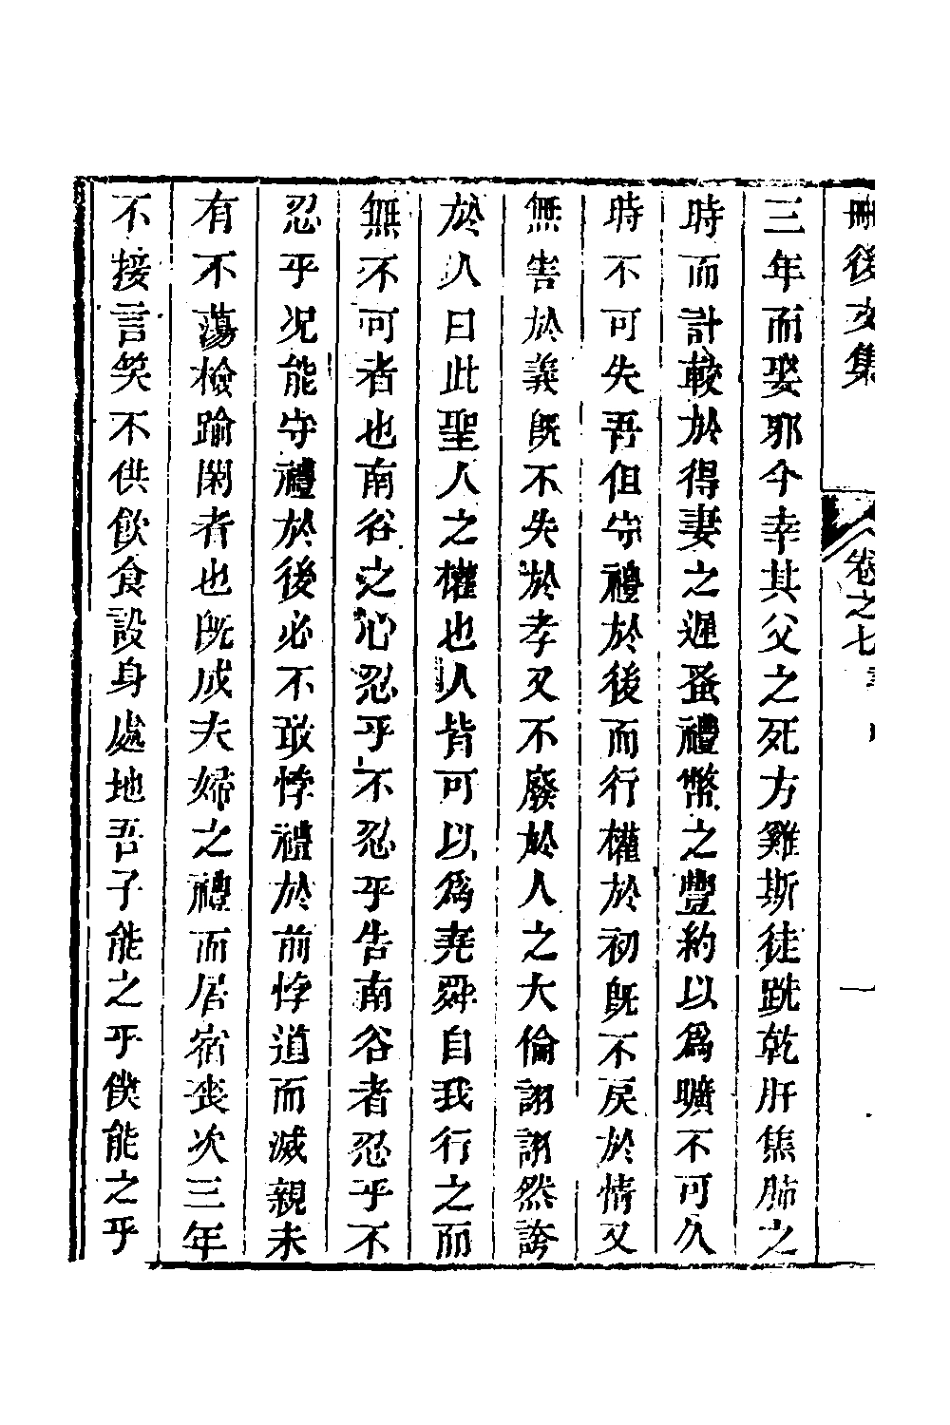 刪後文集 卷之七
三年而娶邪今幸其父之死方雞斯徒跣乾肝焦肺之
時而計較於得妻之遲蚤禮幣之豐約以爲曠不可久
時不可失吾但守禮於後而行權於初既不戾於情又
無害於義既不失於孝又不廢於人之大倫詡詡然誇
於人曰此聖人之權也人皆可以爲堯舜自我行之而
無不可者也南谷之心忍乎不忍乎告南谷者忍乎不
忍乎况能守禮於後必不敢悖禮於前悖道而滅親未
有不蕩檢踰閑者也既成夫婦之禮而居宿喪次三年
不接言笑不供飲食設身處地吾子能之乎僕能之乎